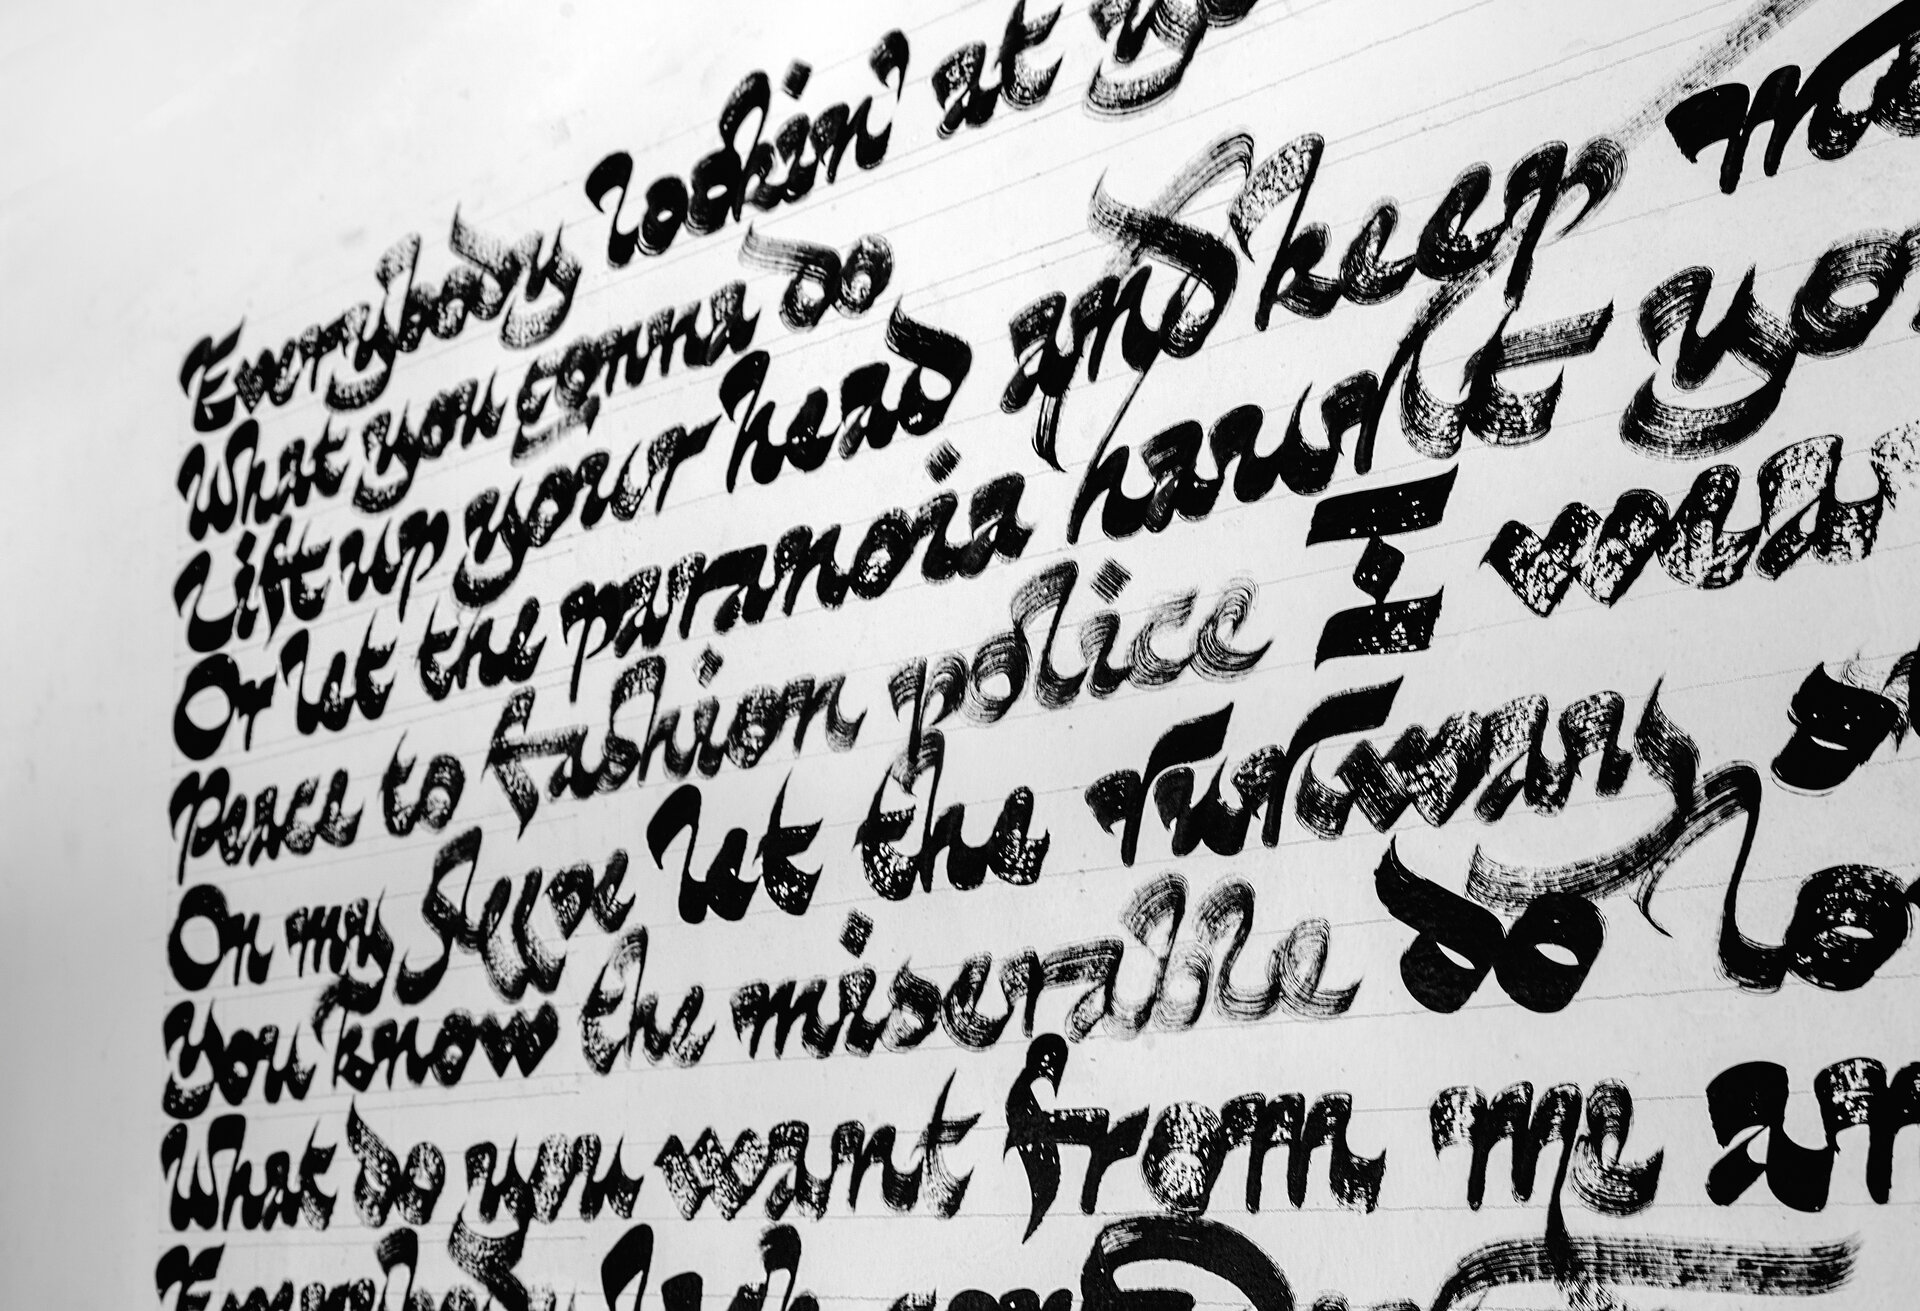 Everybody lookin' at yo
What you gonna do
Lift up your head and keep mo
Or let the paranoia haunt yo
Peace to fashion police I wear
On my sleeve let the runway
You know the miserable do lo
What do you want from me an
Everybody